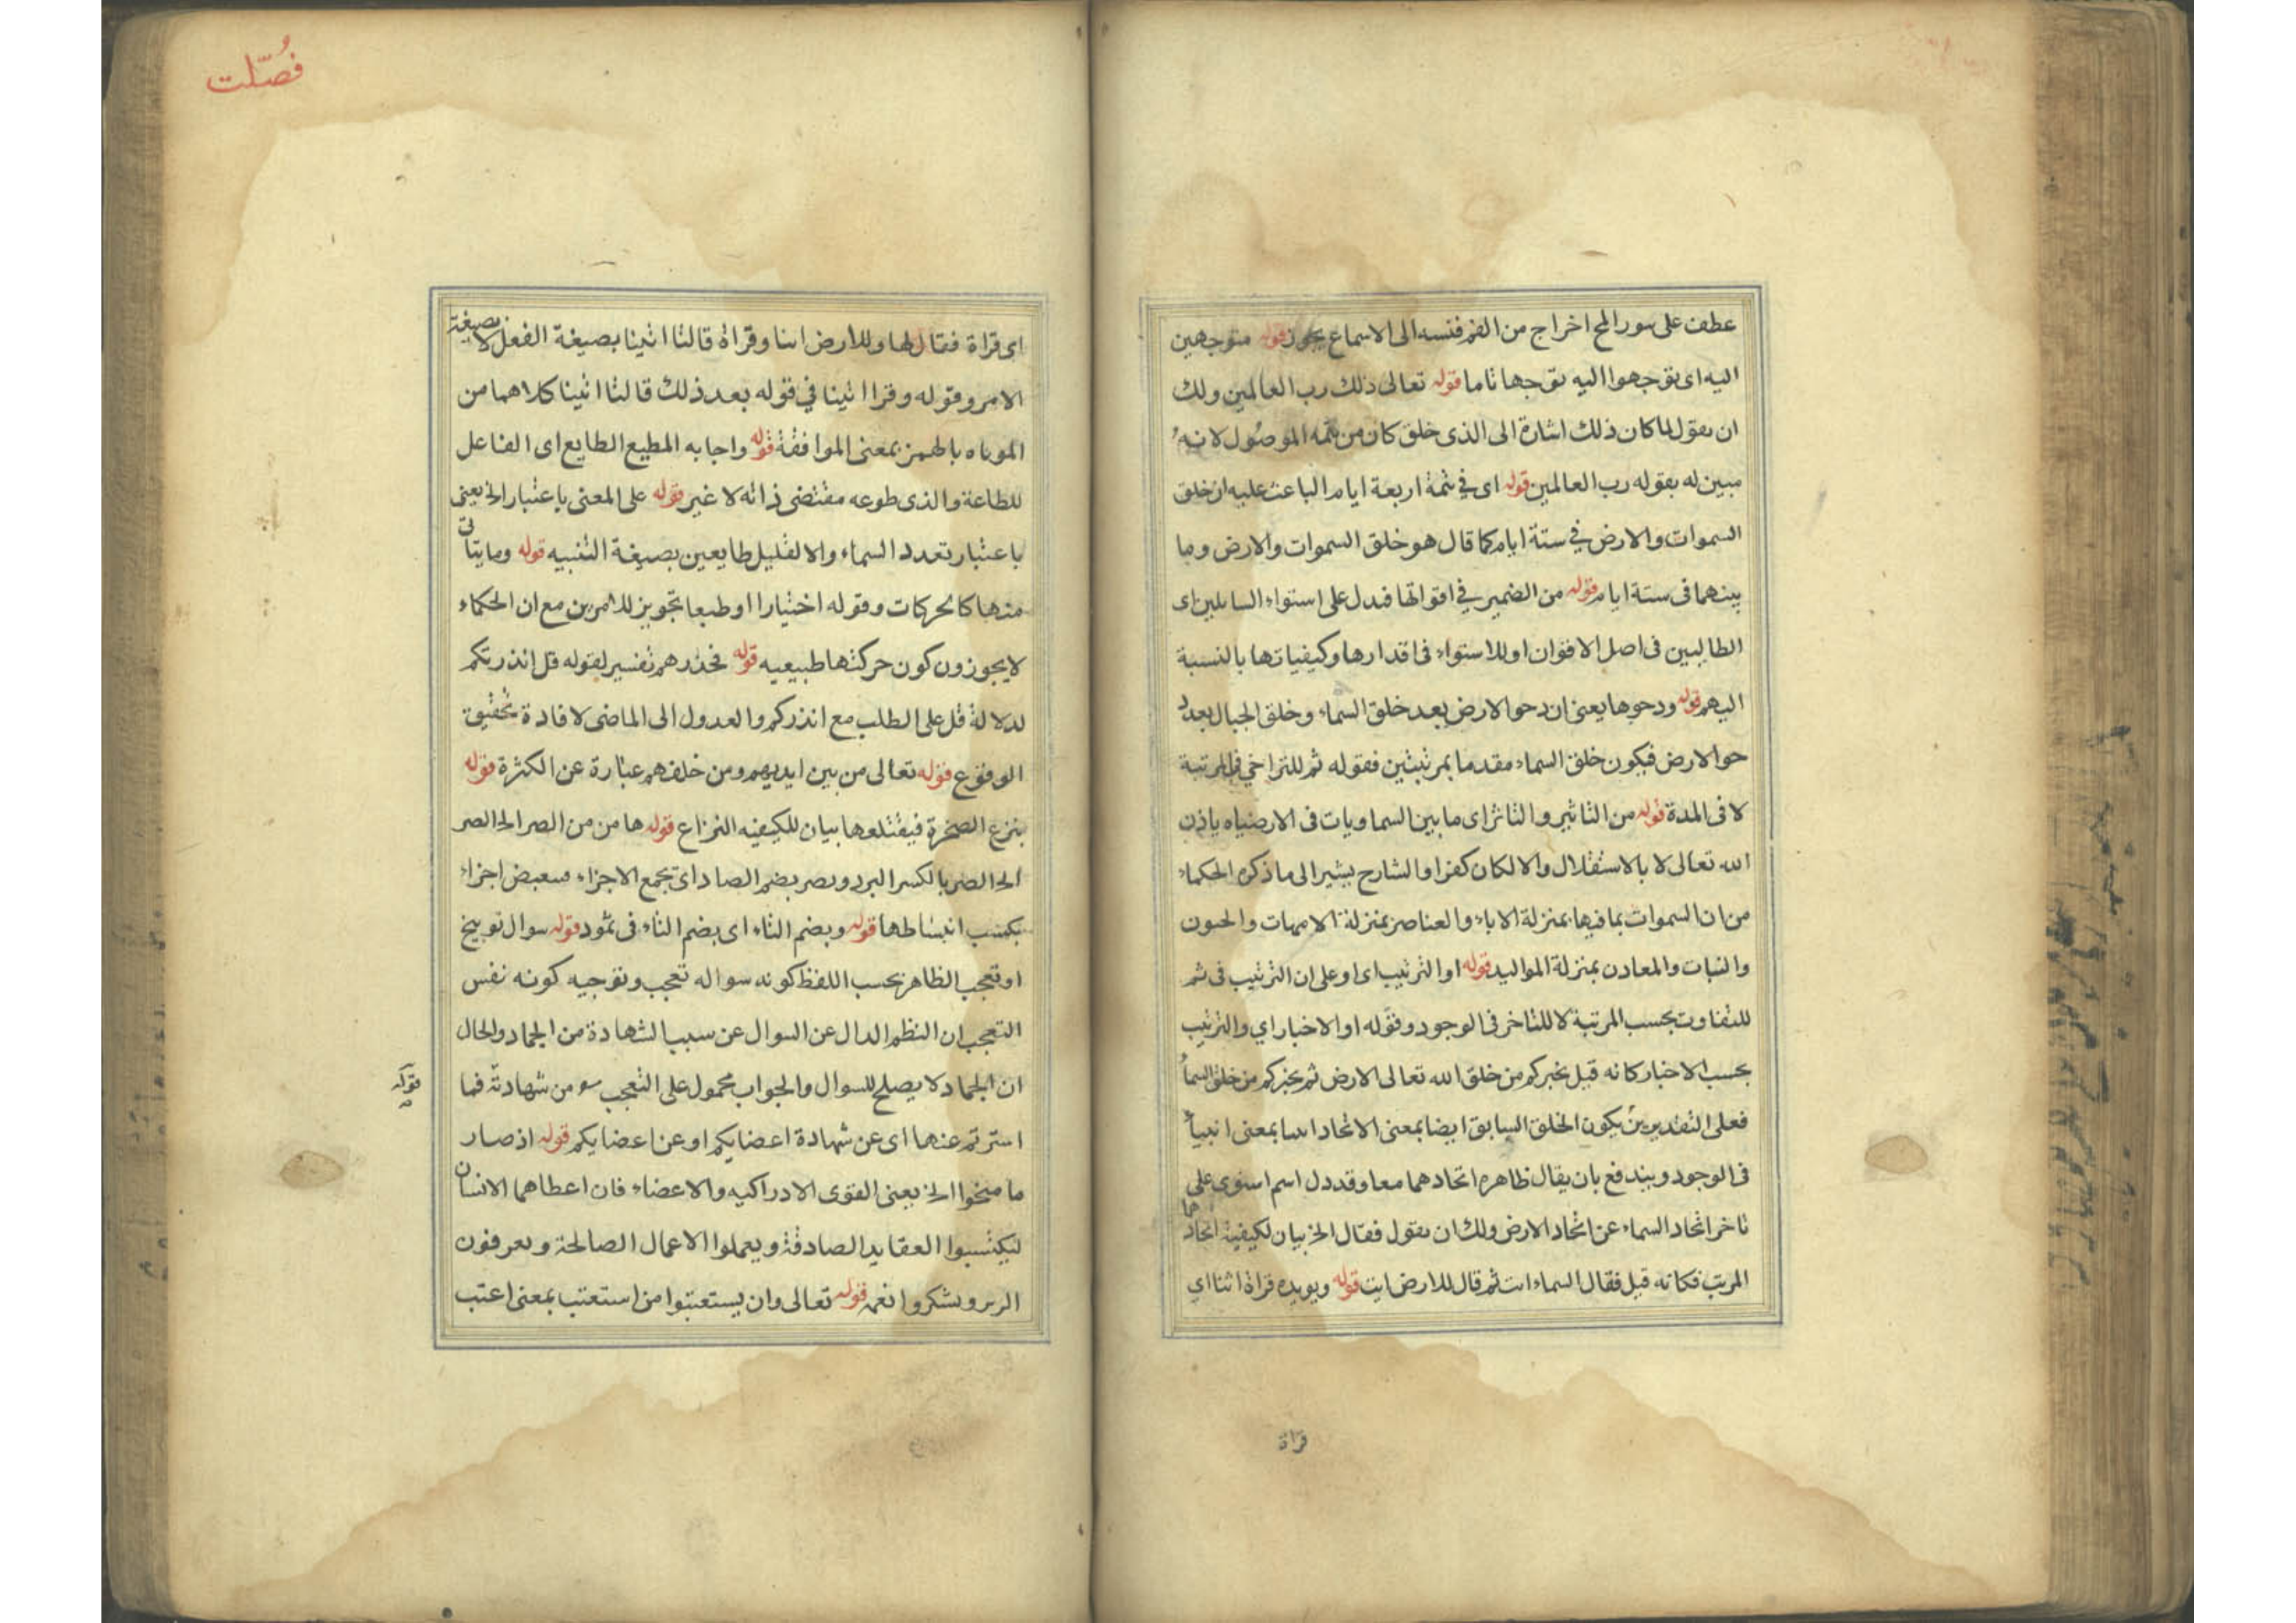 عطف على سور المح اخراج من الفم فنسبه الى الاسماع يجوز قوله متوجهين
اليه اى توجهوا اليه توجها تاما قوله تعالى ذلك رب العالمين ولك
ان يقول لما كان ذلك اشارة الى الذى خلق كان من تتمه الموصول لانه
مبين له بقوله رب العالمين قوله اى فى تتمة اربعة ايام الباعث عليه ان خلق
السموات والارض فى ستة ايام كما قال هو خلق السموات والارض وما
بينهما فى ستة ايام قوله من الضمير فى اقواتها فدل على استواء السايلين اى
الطالبين فى اصل الاقوات او للاستواء فى اقدارها وكيفياتها بالنسبة
اليهم قوله ودحوها يعنى ان دحو الارض بعد خلق السماء وخلق الجبال بعد د
حو الارض فيكون خلق السماء مقدما بمرتبتين فقوله ثم للتراخي فى المرتبة
لا فى المدة قوله من التاثير والتاثر اى ما بين السماويات فى الارضياه باذن
الله تعالى لا بالاستقلال والا لكان كفرا والشارح يشير الى ما ذكره الحكماء
من ان السموات بما فيها بمنزلة الاباء والعناصر بمنزلة الامهات والحيون
والنبات والمعادن بمنزلة المواليد قوله او الترتيب اى او على ان الترتيب فى ثم
للتفاوت بحسب المرتبة لا للتاخر فى الوجود وقوله او الاخبار اي والترتيب
بحسب الاخبار كانه قيل نخبركم من خلق الله تعالى الارض ثم نخبركم من خلق السماء
فعلى التقديرين يكون الخلق السابق ايضا بمعنى الاتحاد اتيا بمعنى
فى الوجود ويندفع بان يقال ظاهره اتحادهما معا وقد دل اسم استوى على
تاخر اتحاد السماء عن اتحاد الارض ولك ان يقول فقال الخ بيان لكيفية اتحادهما
المرتب فكانه قيل فقال السماء ات ثم قال للارض ايت قوله ويويده قراة اتنا اي
قراة
فُصّلت
اى قراة فقال لها وللارض اتيا وقراة قالتا اتينا بصيغة الفعل لا بصيغة
الامر وقوله وقرا اتينا في قوله بعد ذلك قالتا اتينا كلاهما من
المواتاه بالهمز بمعنى الموافقة قوله واجابه المطيع الطايع اى الفاعل
للطاعة والذى طوعه مقتضى ذاته لا غير قوله على المعنى باعتبار الخ يعنى
باعتبار تعدد السماء والا لقيل طايعين بصيغة التنبيه قوله وما يتاتى
منها كالحركات وقوله اختيارا او طبعا تجويز للامرين مع ان الحكماء
لا يجوزون كون حركتها طبيعيه قوله فحذرهم تفسير لقوله قل انذرتكم
لدلالة قل على الطلب مع انذركم والعدول الى الماضى لافادة تحقيق
الوقوع قوله تعالى من بين ايديهم ومن خلفهم عبارة عن الكثرة قوله
بنزع الصخرة فيقتلعها بيان للكيفيه النزاع قوله هامن من الصر الخ الصر
الخ الصر بالكسر البرد وبصر بضم الصاد اى تجمع الاجزاء اجزاء
انبساطها قوله وبضم الثاء اى بضم الثاء فى ثمود قوله سوال توبيخ
او تعجب الظاهر بحسب اللفظ كونه سواله تعجب وتوجيه كونه نفس
التعجب ان النظم الدال عن السوال عن سبب الشهادة من الجماد والحال
ان الجماد لا يصلح للسوال والجواب محمول على التعجب من شهادته فما
قوله
استرتم عنها اى عن شهادة اعضايكم او عن اعضايكم قوله اذ صار
ما منحوا الخ يعنى القوى الادراكيه والاعضاء فان اعطاهما الانسان
ليكتسبوا العقايد الصادقة ويعملوا الاعمال الصالحة ويعرفون
الرب ويشكروا نعمه قوله تعالى وان يستعتبوا من استعتب بمعنى اعتب